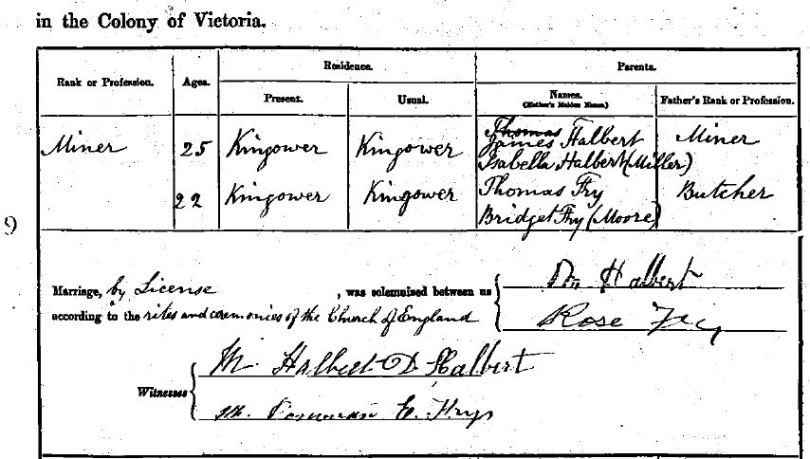 in the Colony of Victoria.
Rank or Profession. Ages. Residence. Parents.
Present. Usual. Names. (Mother's Maiden Name.) Father's Rank or Profession.
Thomas
Miner 25 Kingower Kingower James Halbert Miner
Isabella Halbert (Miller)
22 Kingower Kingower Thomas Fry Butcher
Bridget Fry (Moore)
9
Marriage, by License, was solemnized between us { Halbert
according to the rites and ceremonies of the Church of England Rose Fry
M. Halbert D. Halbert
Witnesses {
E. Frys